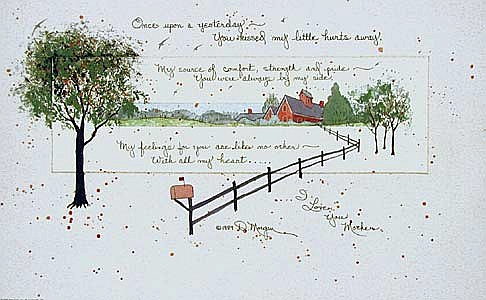 Once upon a yesterday ~
You kissed my little hurts away.
My source of comfort, strength and pride ~
You were always by my side.
My feelings for you are like no other ~
With all my heart....
...I
Love
You
Mother.
©1989 D. Morgan